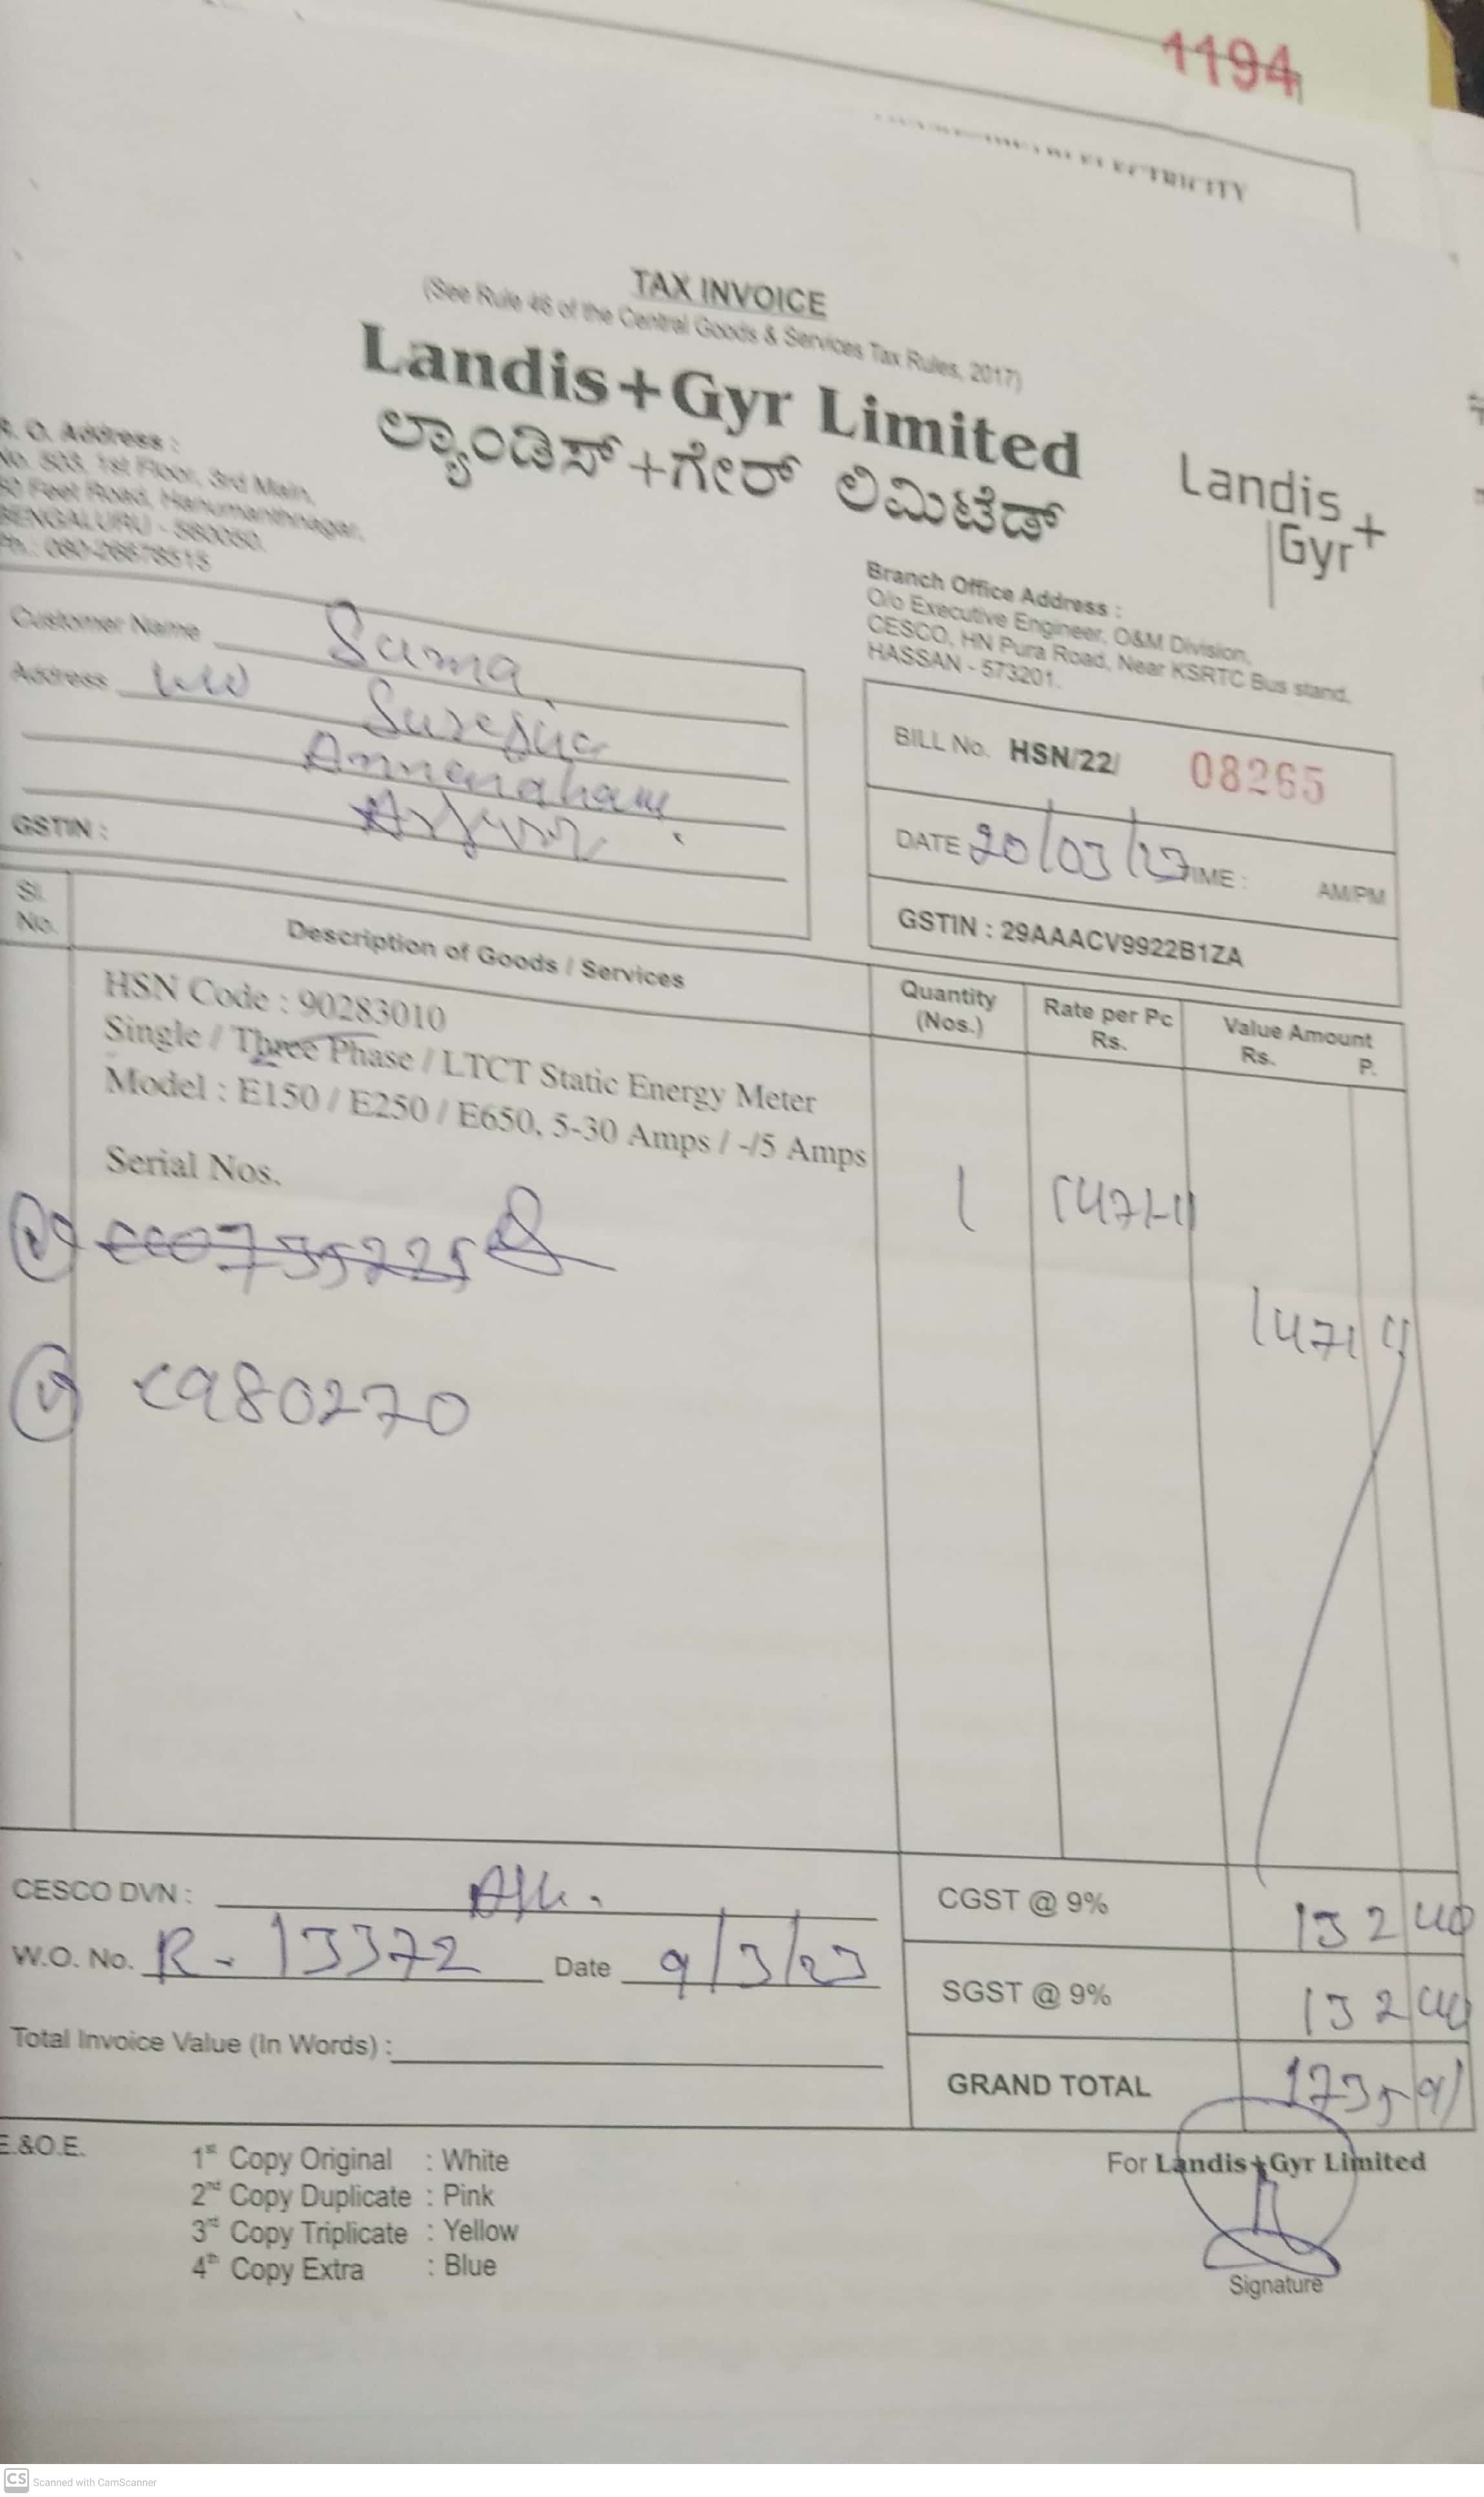 1194
ELECTRICITY
TAX INVOICE
(See Rule 46 of the Central Goods & Services Tax Rules, 2017)
Landis+Gyr Limited
ಲ್ಯಾಂಡಿಸ್+ಗೇರ್ ಲಿಮಿಟೆಡ್
Landis
Gyr+
R. O. Address :
No. 503, 1st Floor, 3rd Main,
Feet Road, Hanumanthnagar,
BENGALURU - 560050.
Ph.: 080-26678515
Branch Office Address :
O/o Executive Engineer, O&M Division,
CESCO, HN Pura Road, Near KSRTC Bus stand,
HASSAN - 573201.
Customer Name Suma
Address
GSTIN :
BILL No. HSN/22/ 08265
DATE 20/03/23 TIME : AM/PM
GSTIN : 29AAACV9922B1ZA
Sl. No. Description of Goods / Services Quantity (Nos.) Rate per Pc Rs. Value Amount Rs. P.
HSN Code : 90283010
Single / Three Phase / LTCT Static Energy Meter
Model : E150 / E250 / E650, 5-30 Amps / -/5 Amps
Serial Nos.
1 1471-11
1471 11
C980270
CESCO DVN :
CGST @ 9% 132 40
W.O. No. R-13372 Date 9/3/23
SGST @ 9% 132 40
Total Invoice Value (In Words) :
GRAND TOTAL 1735 91
E.&O.E.
1st Copy Original : White
2nd Copy Duplicate : Pink
3rd Copy Triplicate : Yellow
4th Copy Extra : Blue
For Landis+Gyr Limited
Signature
CS Scanned with CamScanner